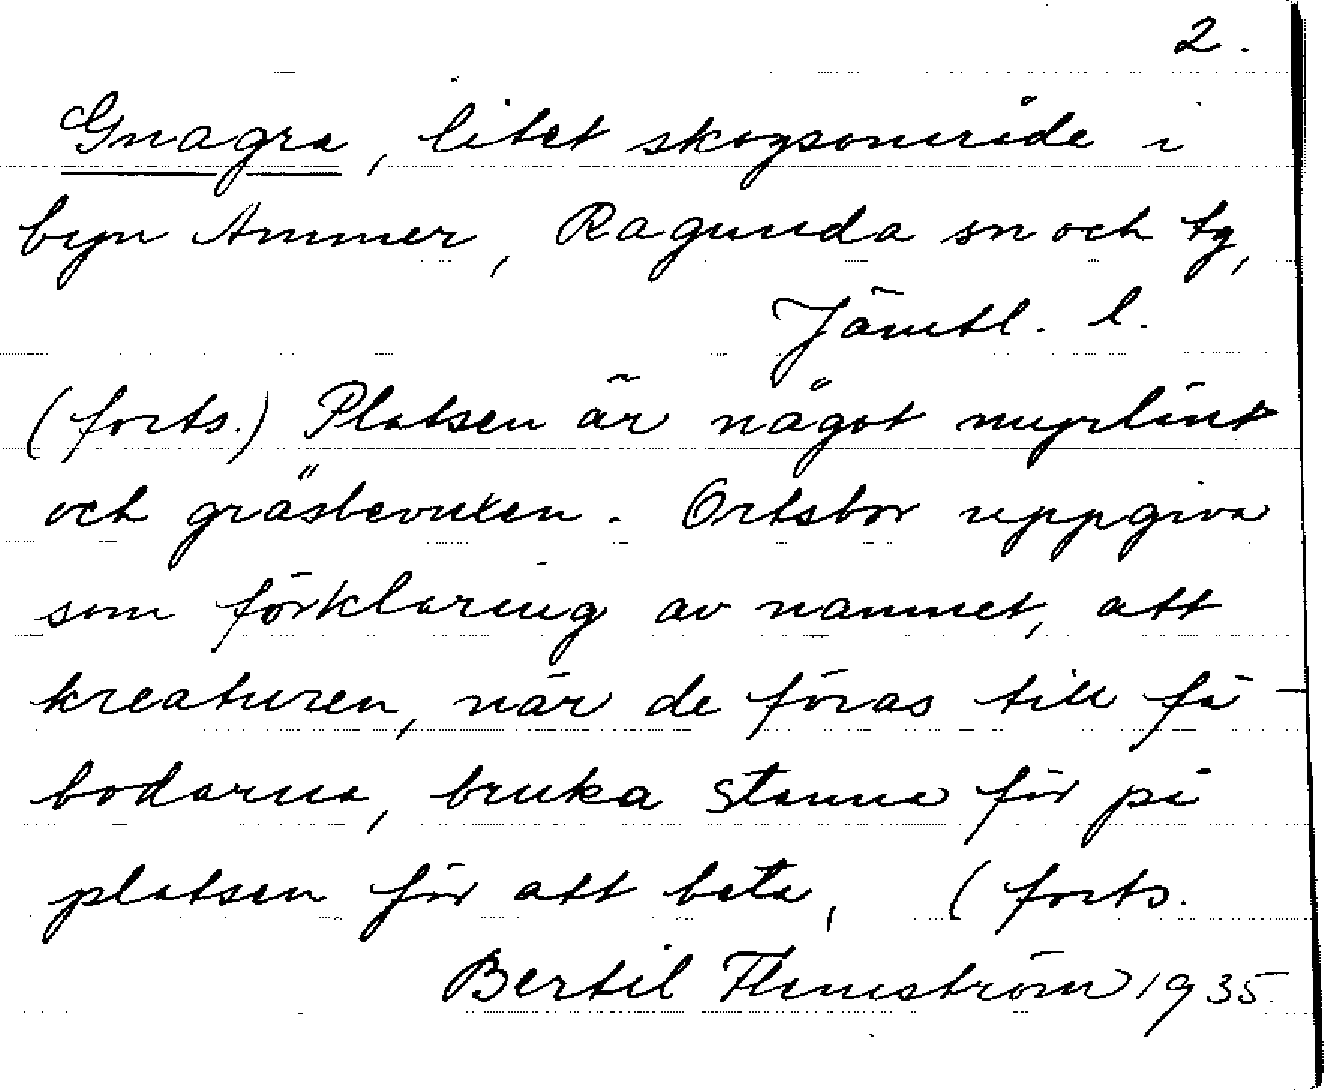 2.
Gnagra, litet skogsområde i
byn Ammer, Ragunda sn och tg,
Jämtl. l.
(forts.) Platsen är något myrlänt
och gräsbevuxen. Ortsbor uppgiva
som förklaring av namnet, att
kreaturen, när de föras till fä-
bodarna, bruka stanna för på
platsen för att beta, (forts.
Bertil Flemström 1935